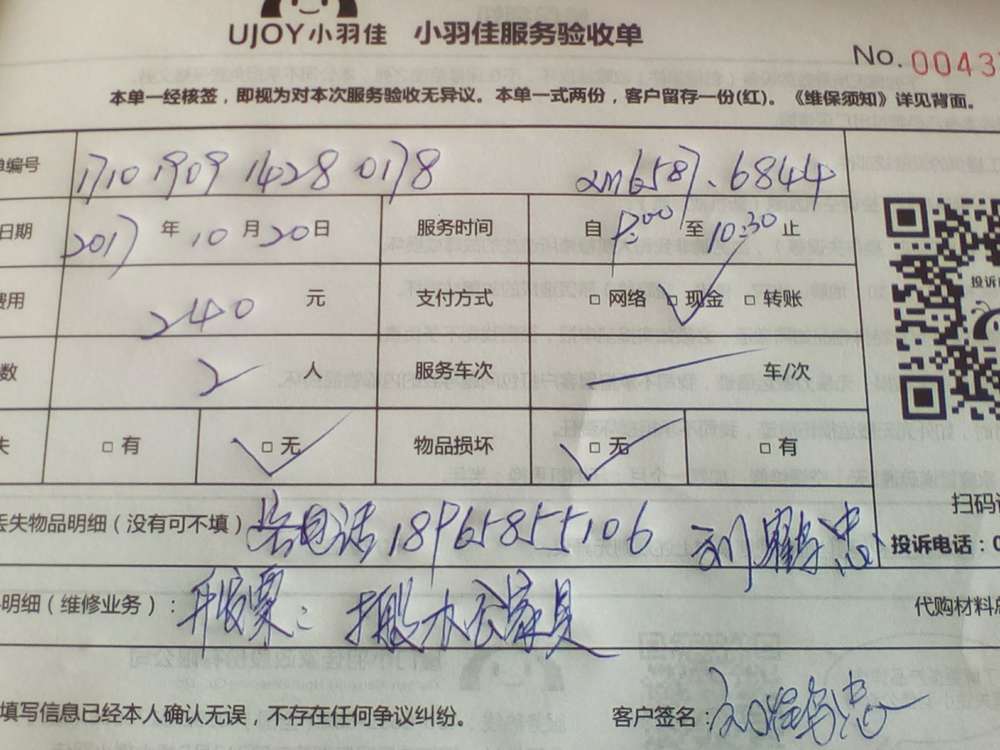 UJOY小羽佳 小羽佳服务验收单
No. 0043
本单一经核签，即视为对本次服务验收无异议。本单一式两份，客户留存一份(红)。《维保须知》详见背面。
单编号 1710190914280178 6587.6844
日期 2017年10月20日 服务时间 自 至10:30止
费用 240元 支付方式 □网络 □现金 □转账
数 2人 服务车次 车/次
失 □有 □无 物品损坏 □无 □有
丢失物品明细（没有可不填） 电话18965855106 刘鹏忠
扫码
投诉电话：0
明细（维修业务）： 开发票： 搬 家具
代购材料总
填写信息已经本人确认无误，不存在任何争议纠纷。 客户签名：